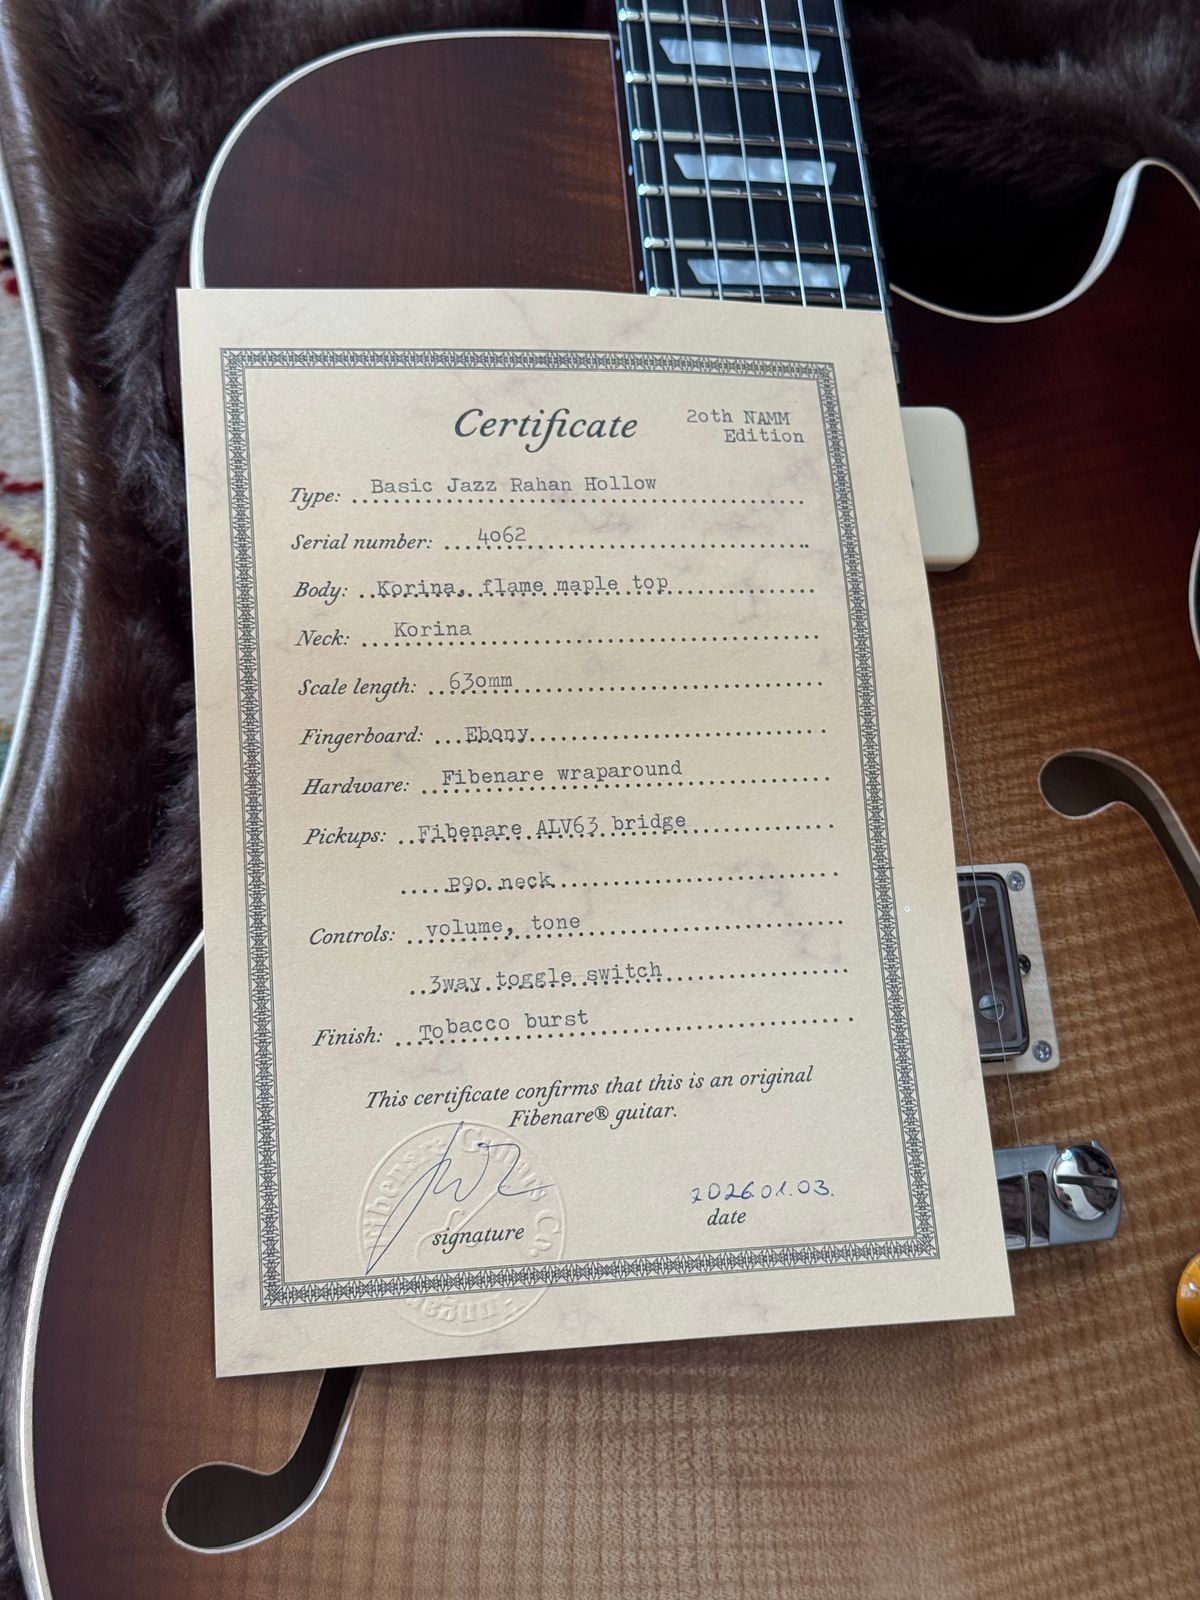 Certificate
20th NAMM
Edition
Type: Basic Jazz Rahan Hollow
Serial number: 4062
Body: Korina, flame maple top
Neck: Korina
Scale length: 630mm
Fingerboard: Ebony
Hardware: Fibenare wraparound
Pickups: Fibenare ALV63 bridge
P90 neck
Controls: volume, tone
3way toggle switch
Finish: Tobacco burst
This certificate confirms that this is an original
Fibenare® guitar.
Fibenare Guitars Co.
signature
2026.01.03.
date